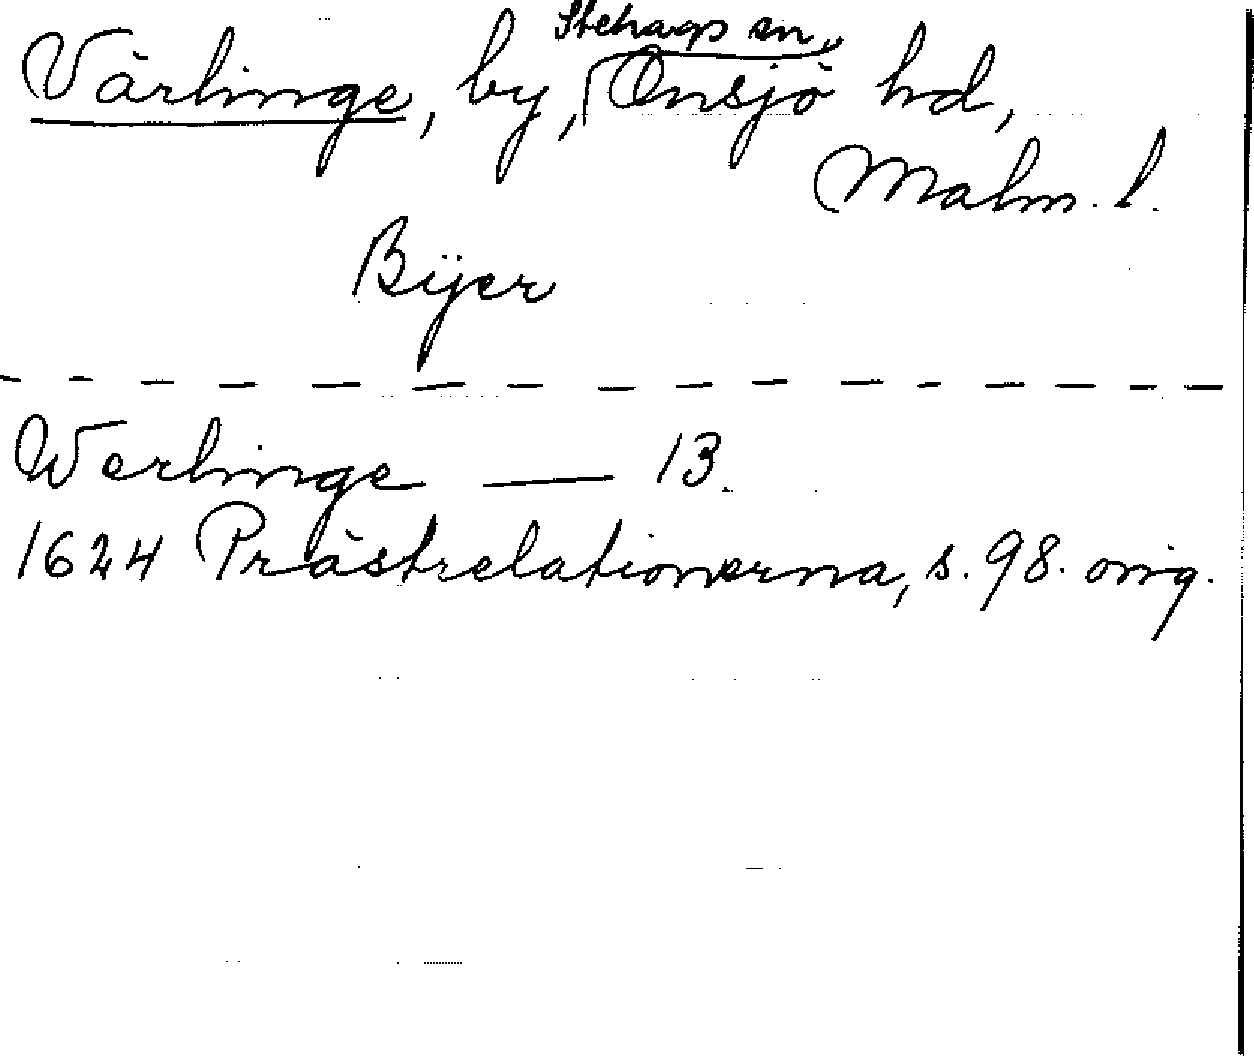 Stehags sn,
Värlinge, by, Onsjö hd,
Malm. l.
Bÿer
Werlinge — 13.
1624 Prästrelationerna, s. 98. orig.